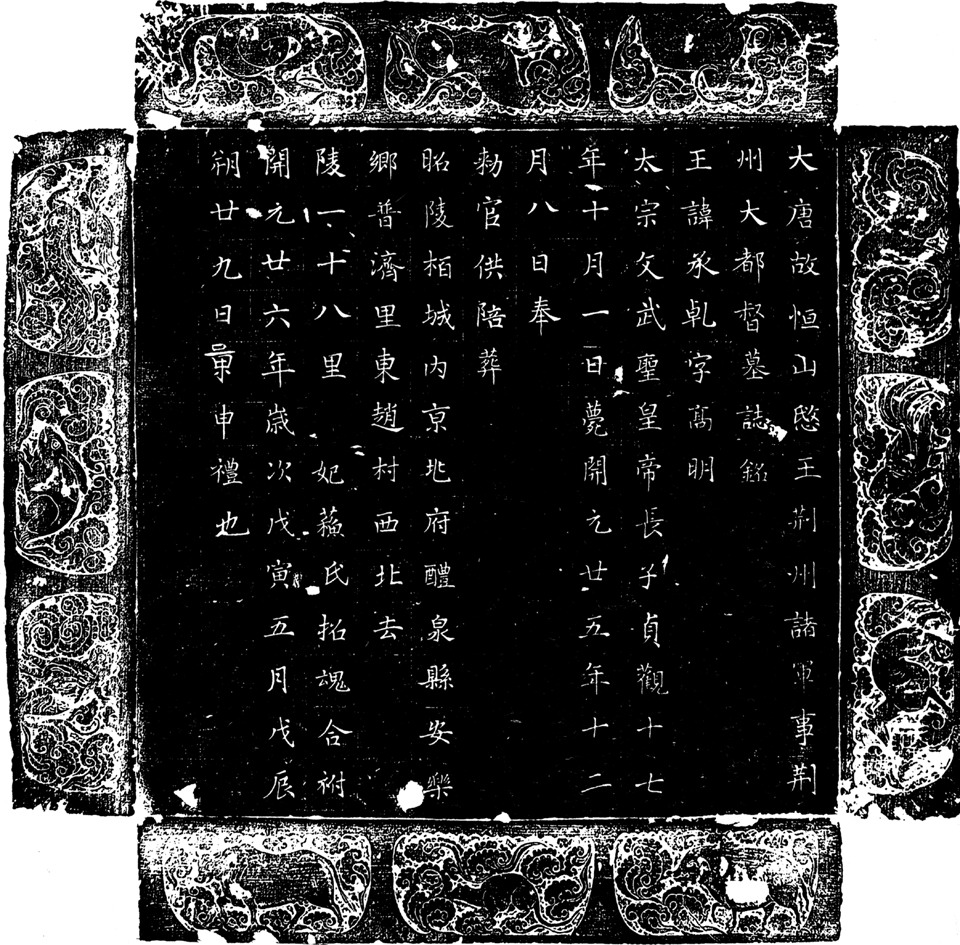 大唐故恒山愍王荆州諸軍事荆
州大都督墓誌銘
王諱承乹字高明
太宗文武聖皇帝長子貞觀十七
年十月一日薨開元廿五年十二
月八日奉
勑官供陪葬
昭陵栢城内京兆府醴泉縣安樂
鄉普濟里東趙村西北去
陵一十八里 妃蘓氏招魂合祔
開元廿六年歲次戊寅五月戊辰
朔廿九日景申禮也